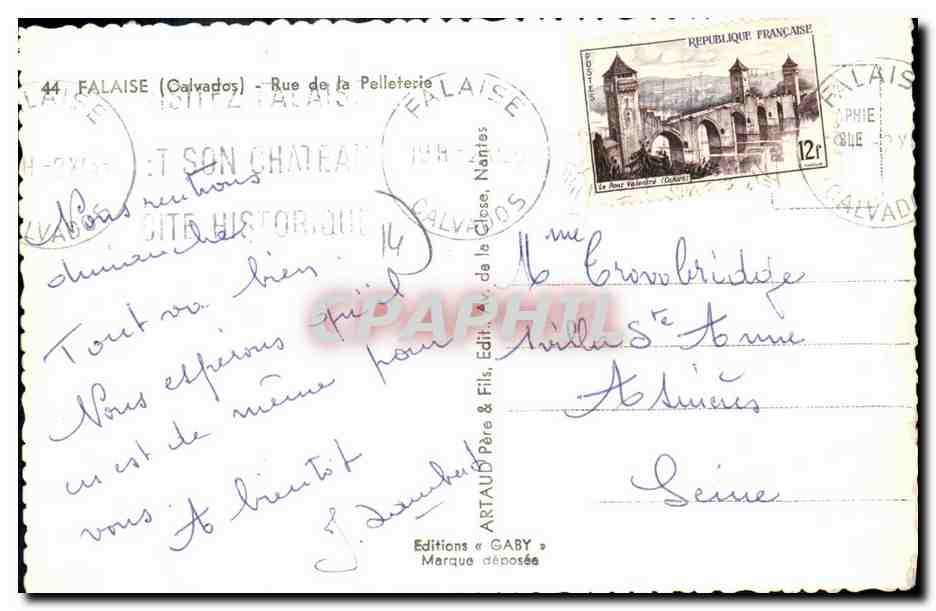 44 FALAISE (Calvados) - Rue de la Pelleterie
VISITEZ FALAISE
ET SON CHATEAU
SITE HISTORIQUE
FALAISE
CALVADOS
FALAISE
19H-2
CALVADOS
FALAISE
CALVADOS
REPUBLIQUE FRANÇAISE
POSTES
Le Pont Valentré (Cahors)
12f
Nous rentrons
dimanche 14
Tout va bien.
Nous espérons qu'il
en est de même pour
vous. A bientôt
J.
ARTAUD Père & Fils, Edit., Av. de la Close, Nantes
Mme Trovobridge
villa Ste Anne
Asnières
Seine
CPAPHIL
Editions « GABY »
Marque déposée